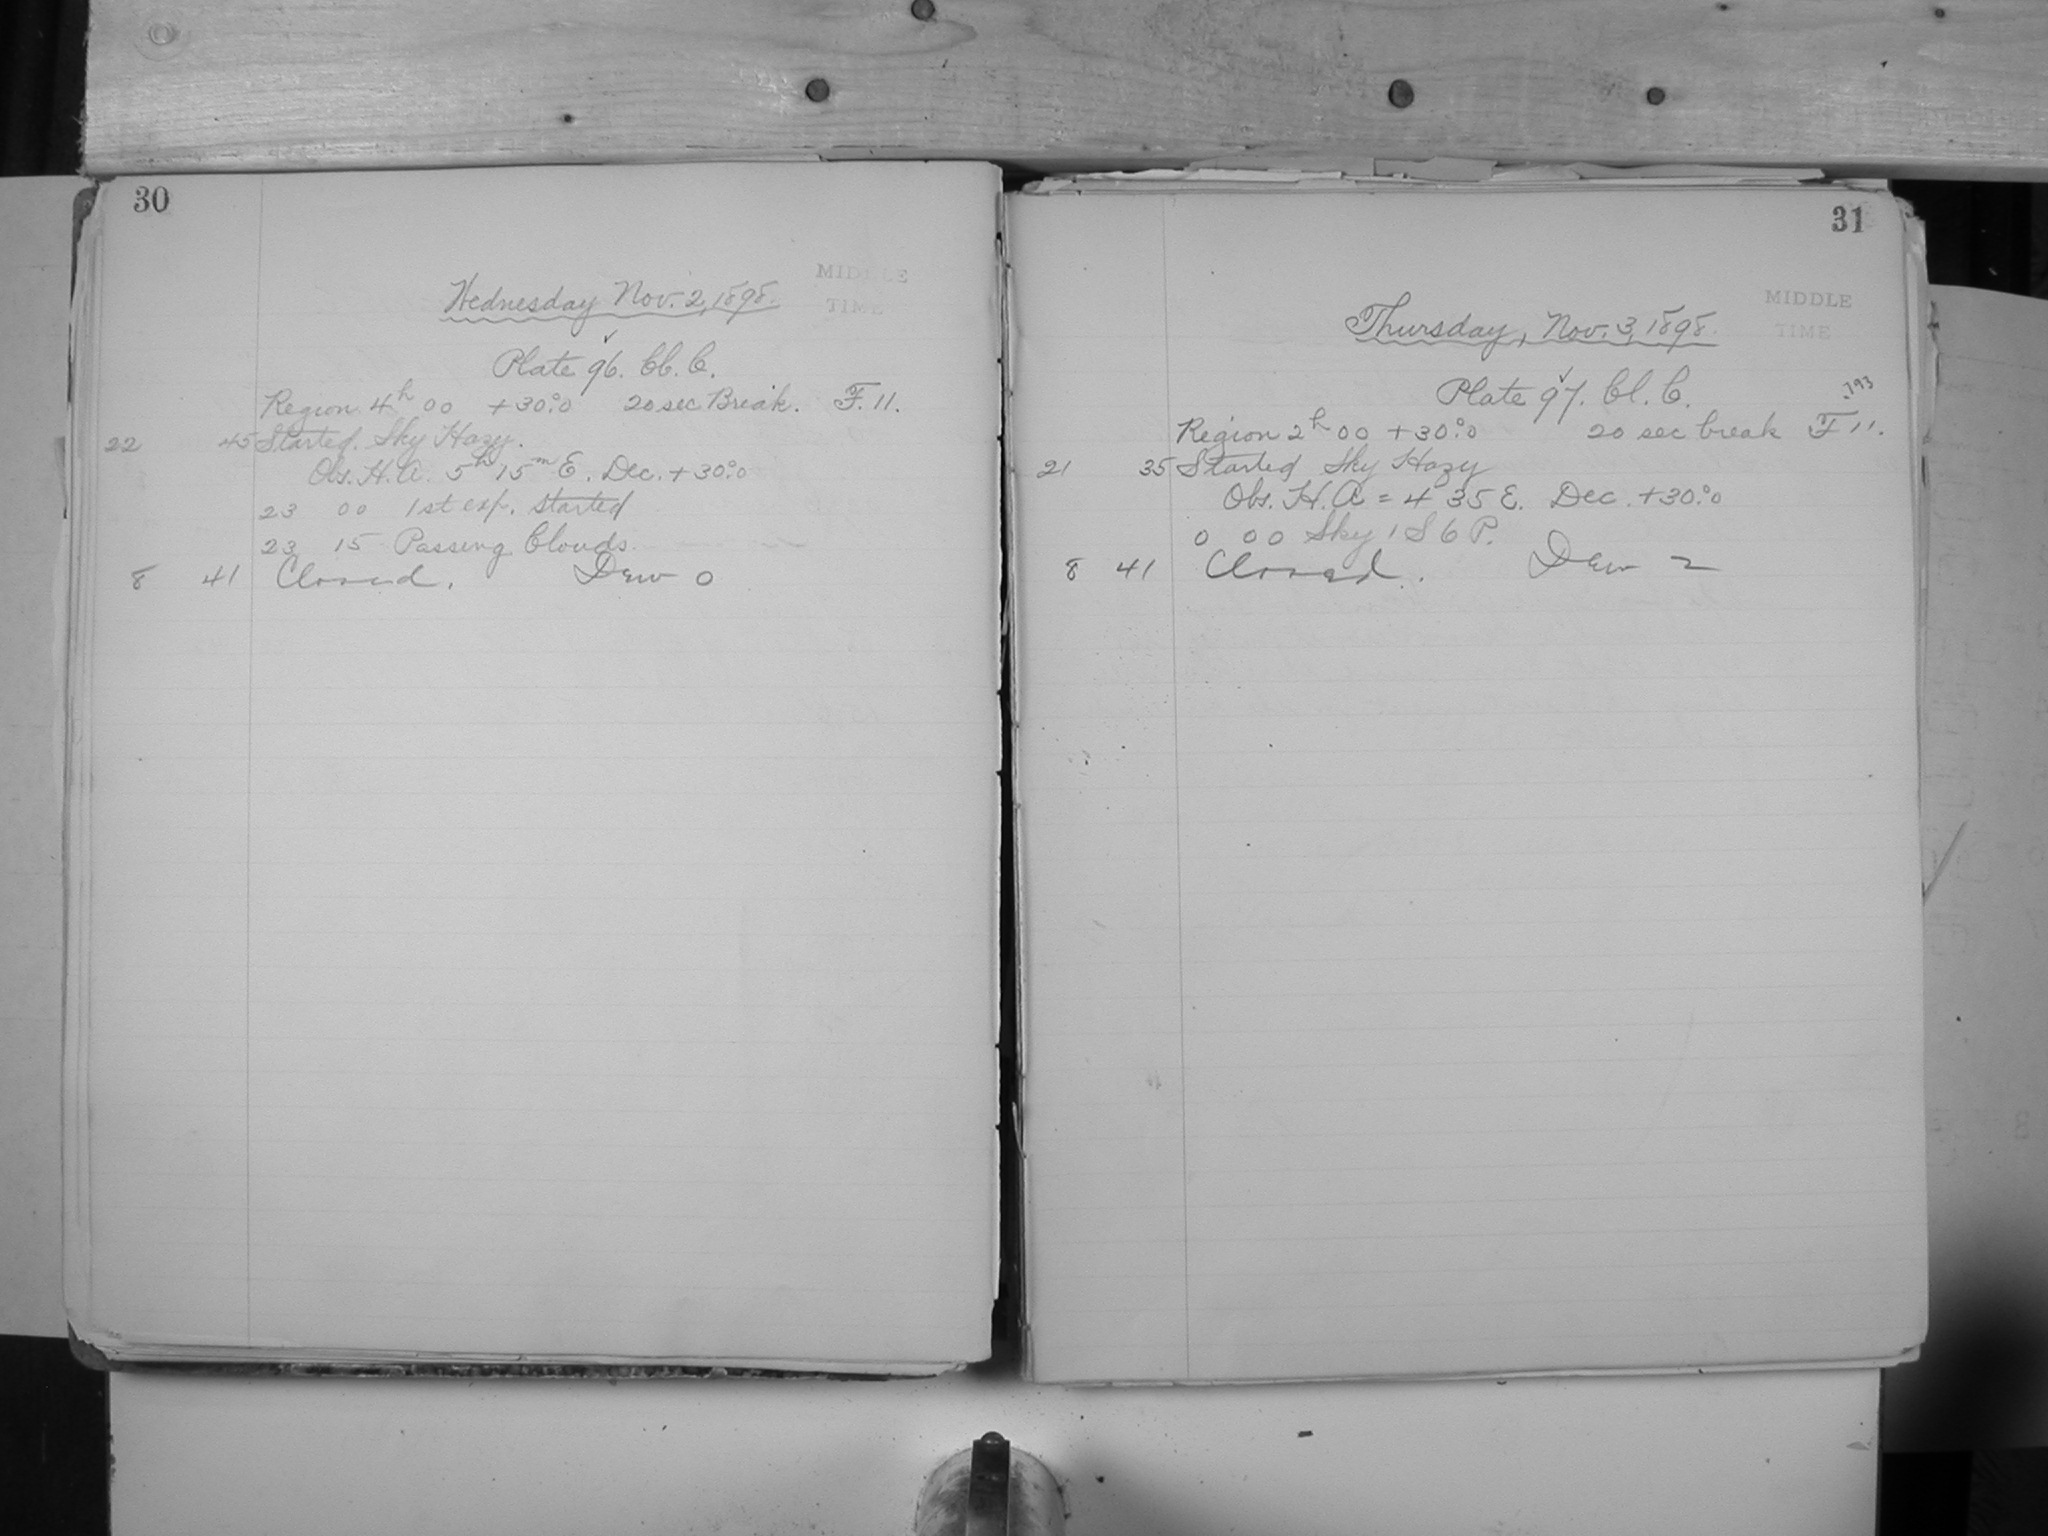 30
MIDDLE
TIME
Wednesday Nov. 2, 1898.
Plate 96. Cl. C.
Region 4h 00 +30°.0 20 sec Break. F. 11.
22 45 Started. Sky Hazy.
Obs. H. A. 5h 15m E. Dec. +30°.0
23 00 1st exp. started
23 15 Passing Clouds
8 41 Closed. Dew 0
31
MIDDLE
TIME
Thursday, Nov. 3, 1898.
Plate 97. Cl. C.
.793
Region 2h 00 +30°.0 20 sec break F 11.
21 35 Started Sky Hazy
Obs. H. A = 4 35 E. Dec. +30°.0
0 00 Sky 1 S 6 P.
8 41 Closed. Dew 2